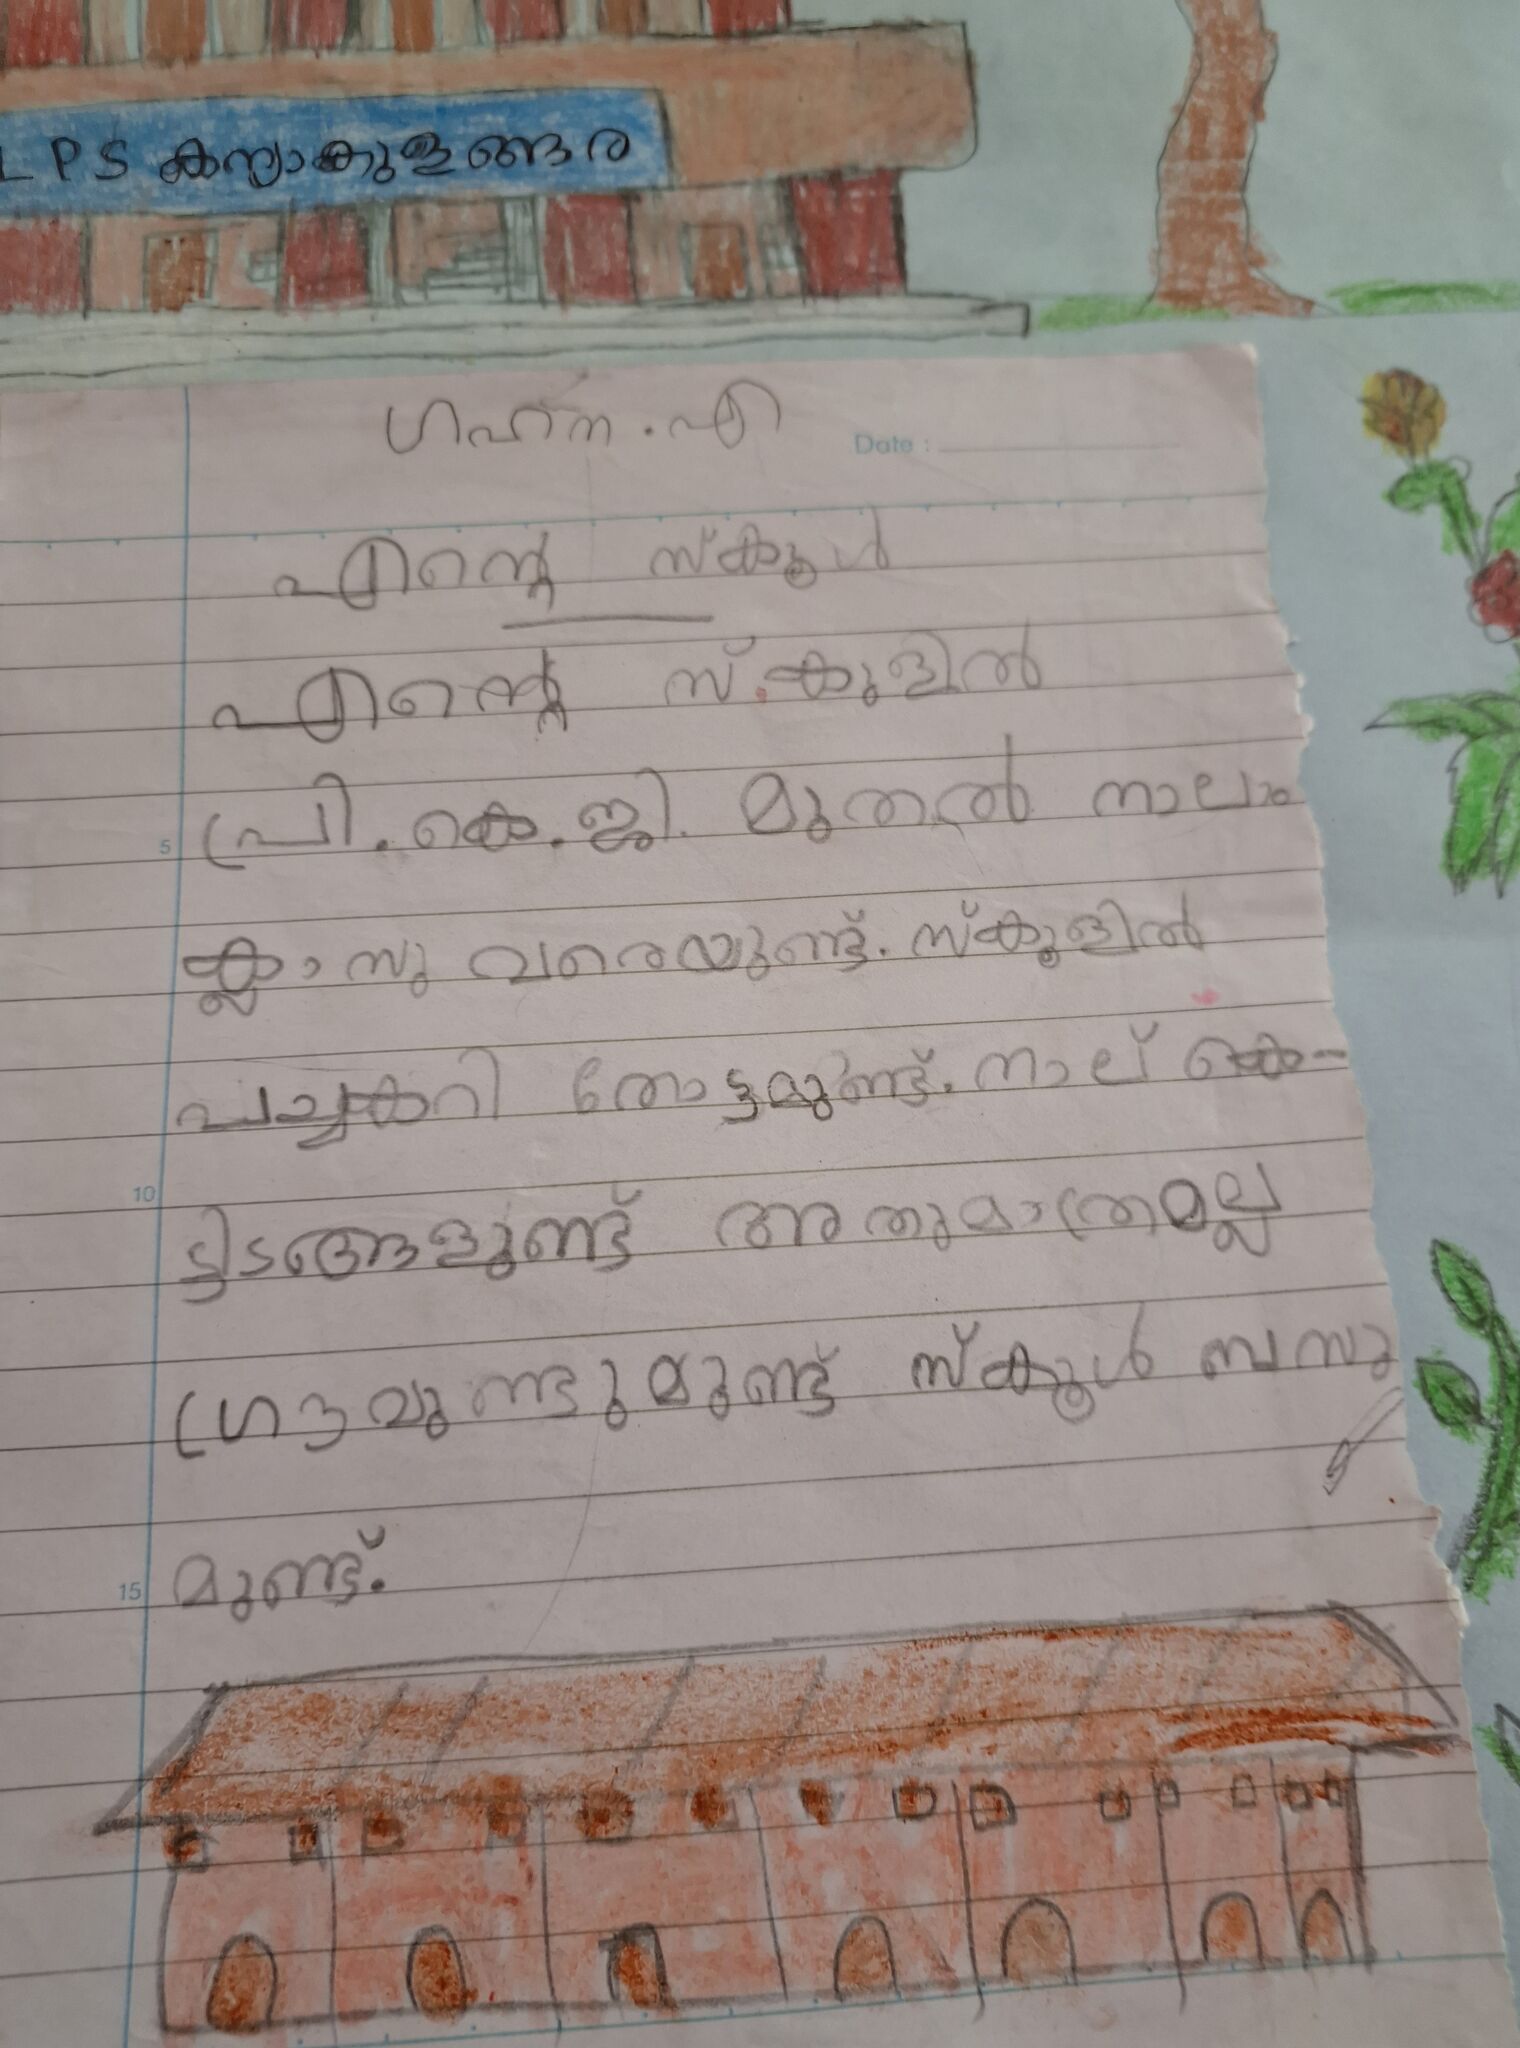 LPS കന്യാകുളങ്ങര
ഗഹന . എ
Date :
എന്റെ സ്കൂൾ
എന്റെ സ്.കൂളിൽ
5 പ്രി . കെ . ജി . മുതൽ നാലാം
ക്ലാസു വരെയുണ്ട്. സ്കൂളിൽ
പച്ചക്കറി തോട്ടമുണ്ട്. നാല് കെ-
10
ട്ടിടങ്ങളുണ്ട് അതുമാത്രമല്ല
ഗ്രൗവുണ്ടുമുണ്ട് സ്കൂൾ ബസു
15 മുണ്ട്.